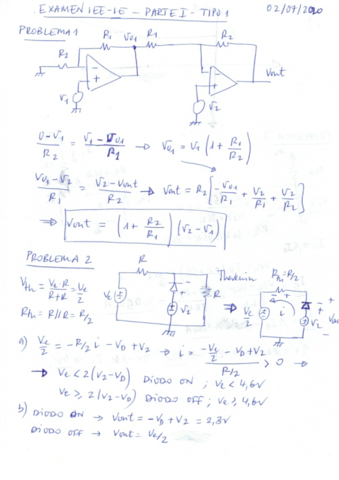 EXAMEN IEE-IE - PARTE I - TIPO 1 02/09/2020
PROBLEMA 1
R2 R1 Vo1 R1 R2
- + - + Vout
V1 V2
(0-V1)/R2 = (V1-Vo1)/R1 → Vo1 = V1 (1 + R1/R2)
(Vo1-V2)/R1 = (V2-Vout)/R2 → Vout = R2 [-Vo1/R1 + V2/R1 + V2/R2]
⇒ Vout = (1 + R2/R1) (V2-V1)
PROBLEMA 2
Vth = Ve·R/(R+R) = Ve/2
Rth = R//R = R/2
R Ve V2 R Thevenin ⇒ Rth=R/2 Ve/2 i V2
a) Ve/2 = -R/2 i - VD + V2 → i = (-Ve/2 - VD + V2)/(R/2) > 0 →
→ Ve < 2(V2-VD) DIODO ON ; Ve < 4,6V
Ve ≥ 2(V2-VD) DIODO OFF ; Ve ≥ 4,6V
b) DIODO ON → Vout = -VD + V2 = 2,3V
DIODO OFF → Vout = Ve/2